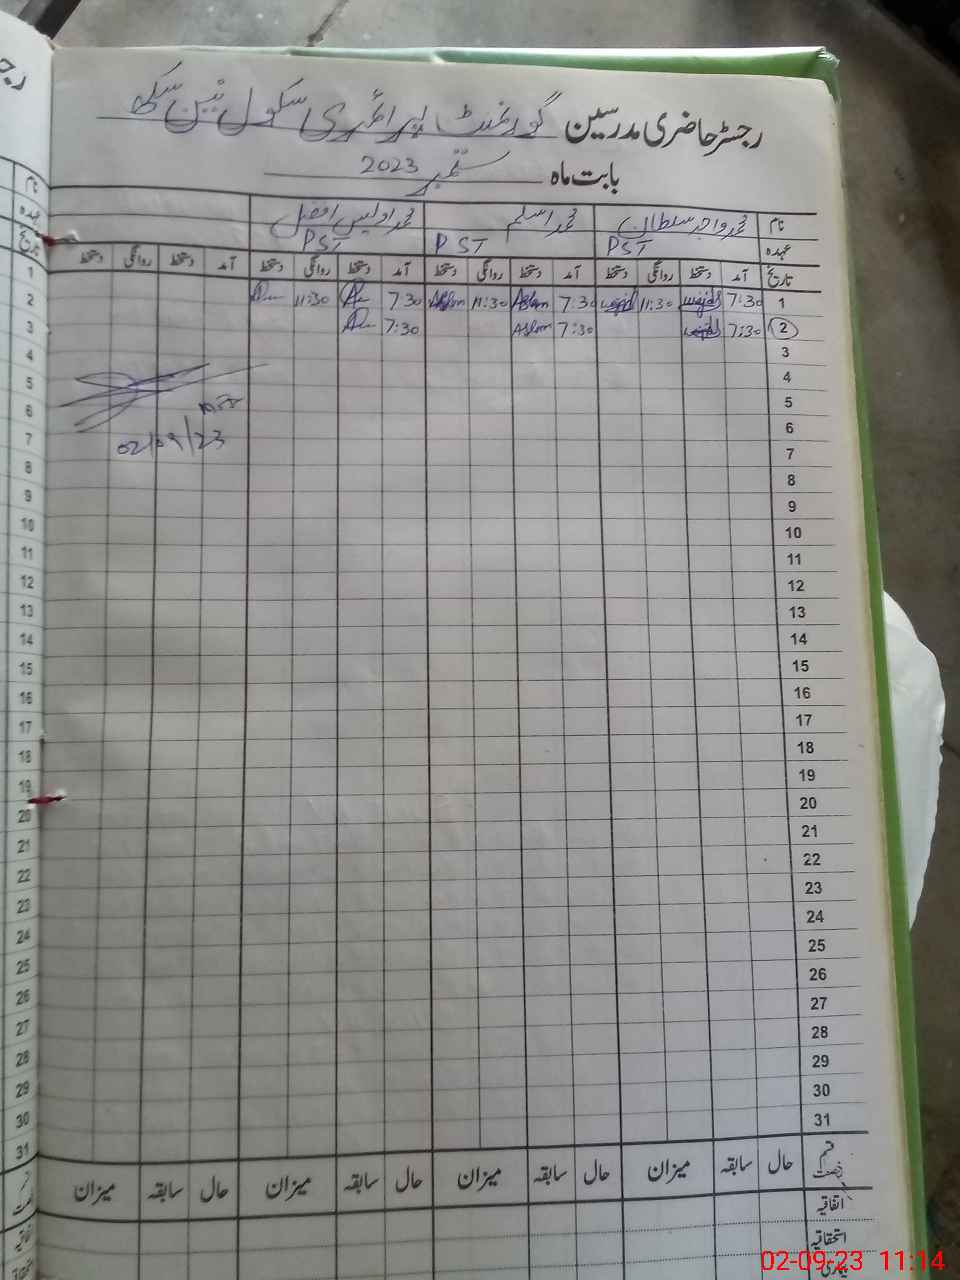 رجسٹر حاضری مدرسین گورنمنٹ پرائمری سکول نین سکھ
بابت ماہ ستمبر 2023
نام محمد واجد سلطان محمد اسلم محمد اویس افضل
عہدہ PST PST PST
تاریخ آمد دستخط روانگی دستخط آمد دستخط روانگی دستخط آمد دستخط روانگی دستخط آمد دستخط روانگی دستخط
1 7:30 wajid 11:30 wajid 7:30 Aslam 11:30 Aslam 7:30 11:30
2 7:30 wajid 7:30 Aslam 7:30
3
4
5
6
02/09/23
7
8
9
10
11
12
13
14
15
16
17
18
19
20
21
22
23
24
25
26
27
28
29
30
31
قسم رخصت حال سابقہ میزان حال سابقہ میزان حال سابقہ میزان حال سابقہ میزان
اتفاقیہ
استحقاقیہ
بیماری
نام
عہدہ
تاریخ
1
2
3
4
5
6
7
8
9
10
11
12
13
14
15
16
17
18
19
20
21
22
23
24
25
26
27
28
29
30
31
02-09-23 11:14